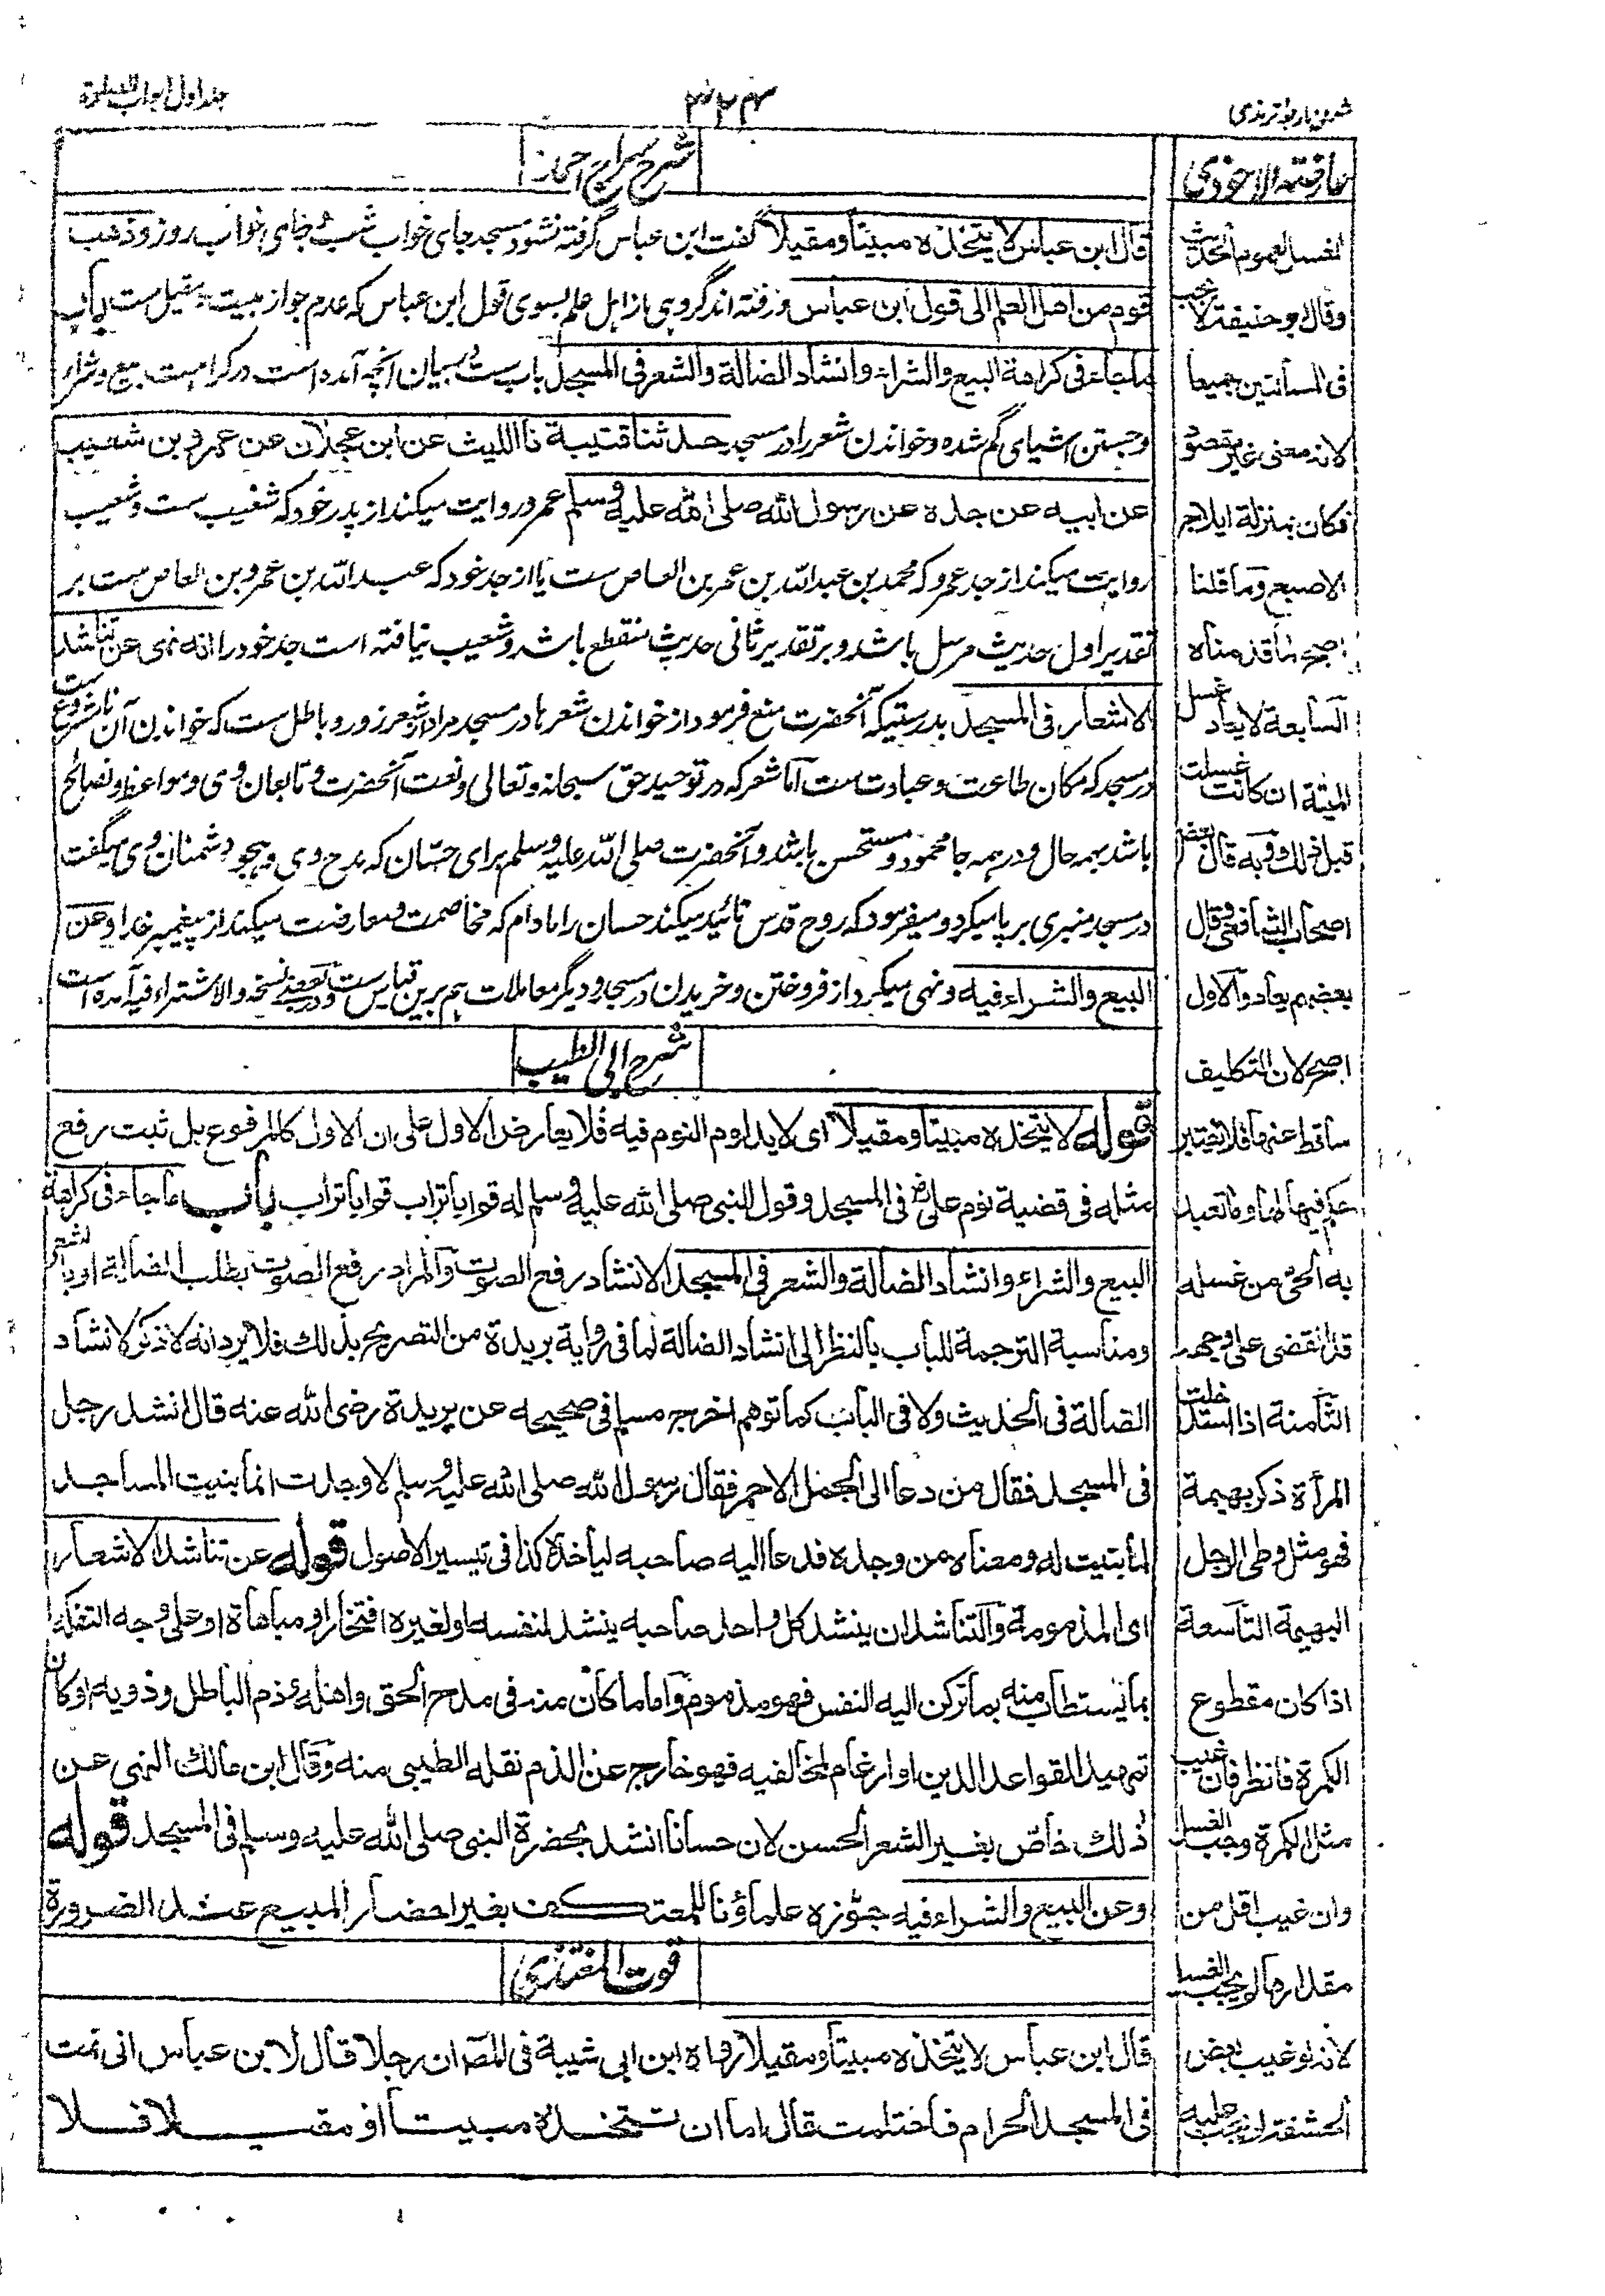 شروح اربعه ترمذی
۳۲۴
جلد اول ابواب الصلوة
شرح سراج احمد
قال ابن عباس لا يتخذه مبيتا ومقيلا گفت ابن عباس گرفته نشود مسجد جای خواب شب و جای خواب روز وذهب
قوم من اهل العلم الى قول ابن عباس و رفته اند گروهی از اهل علم بسوی قول ابن عباس که عدم جواز مبیت و مقیل ست باب
ماجاء فى كراهة البيع والشراء وانشاد الضالة والشعر فى المسجد باب ست در بیان آنچه آمده است در کراهیت بیع و شراء
و جستن اشیای گم شده و خواندن شعر را در مسجد حدثنا قتيبة نا الليث عن ابن عجلان عن عمرو بن شعيب
عن ابيه عن جده عن رسول الله صلى الله عليه وسلم عمرو روایت میکند از پدر خود که شعیب ست و شعیب
روایت میکند از جد عمرو که محمد بن عبدالله بن عمرو بن العاص ست یا از جد خود که عبدالله بن عمرو بن العاص ست بر
تقدیر اول حدیث مرسل باشد و بر تقدیر ثانی حدیث منقطع باشد و شعیب نیافته است جد خود را انه نهى عن تناشد
الاشعار فى المسجد بدرستیکه آنحضرت منع فرمود از خواندن شعرها در مسجد مراد شعر زور و باطل ست که خواندن آن نامشروع ست
در مسجد که مکان طاعت و عبادت ست اما شعر که در توحید حق سبحانه و تعالی و نعت آنحضرت و تابعان وی و مواعظ و نصائح
باشد بهمه حال و در همه جا محمود و مستحسن باشد و آنحضرت صلی الله علیه وسلم برای حسان که مدح وی و هجو دشمنان وی میگفت
در مسجد منبری بر پا میکرد و میفرمود که روح قدس تائید میکند حسان را مادام که مخاصمت و معارضت میکند از پیغمبر خدا وعن
البيع والشراء فيه و نهی میکرد از فروختن و خریدن در مسجد و دیگر معاملات هم برین قیاس ست و در بعضے نسخه والاشتراء فیه آمده است
شرح ابی الطیب
قوله لا يتخذه مبيتا ومقيلا اى لا يداوم النوم فيه فلا يعارض الاول على ان الاول كالمرفوع بل ثبت رفع
مثله فى قضية نوم على رض فى المسجد وقول النبى صلى الله عليه وسلم له قم يا با تراب قم يا با تراب باب ما جاء فى كراهة
البيع والشراء وانشاد الضالة والشعر فى المسجد الانشاد رفع الصوت والمراد رفع الصوت بطلب الضالة او بالشعر
ومناسبة الترجمة للباب بالنظر الى انشاد الضالة لما فى رواية بريدة من التصريح بذلك فلا يرد انه لا ذكر لانشاد
الضالة فى الحديث ولا فى الباب كما توهم اخرج مسلم فى صحيحه عن بريدة رضى الله عنه قال انشد رجل
فى المسجد فقال من دعا الى الجمل الاحمر فقال رسول الله صلى الله عليه وسلم لا وجدت انما بنيت المساجد
لما بنيت له ومعناه من وجده فدعا اليه صاحبه لياخذه كذا فى تيسير الاصول قوله عن تناشد الاشعار
اى المذمومة والتناشد ان ينشد كل واحد صاحبه ينشد لنفسه او لغيره افتخارا و مباهاة او على وجه التفكه
بما يستطاب منه بما تركن اليه النفس فهو مذموم واما ما كان منه فى مدح الحق واهله وذم الباطل وذويه او كان
تمهيد القواعد الدين او ارغام لمخالفيه فهو خارج عن الذم نقله الطيبى منه وقال ابن مالك النهى عن
ذلك خاص بغير الشعر الحسن لان حسانا انشد بحضرة النبى صلى الله عليه وسلم فى المسجد قوله
وعن البيع والشراء فيه جوزه علماؤنا للمعتكف بغير احضار المبيع عند الضرورة
قوت المغتذی
قال ابن عباس لا يتخذه مبيتا ومقيلا رواه ابن ابى شيبة فى المصـ ان رجلا قال لابن عباس انى نمت
فى المسجد الحرام فاحتلمت قال اما ان تتخذه مبيتا او مقيلا فلا
عارضة الاحوذی
الغسل لعموم الحديث
وقال ابو حنيفة لا يجب
فى المسألتين جميعا
لانه معنى غير مقصود
فكان بمنزلة ايلاج
الاصبع وما قلنا
اصح لما قدمناه
السابعة لا يعاد غسل
الميتة ان كانت غسلت
قبل ذلك وبه قال بعض
اصحاب الشافعى وقال
بعضهم يعاد والاول
اصح لان التكليف
ساقط عنها فلا يعتبر
به الحى من غسله
قد انقضى على وجهه
الثامنة اذا استدخلت
المرأة ذكر بهيمة
فهو مثل وطى الرجل
البهيمة التاسعة
اذا كان مقطوع
الكمرة فانظر فان غيب
مثل الكمرة وجب الغسل
وان غيب اقل من
مقدارها لم يجب الغسل
لانه لو غيب بعض
الحشفة لم يجب عليه